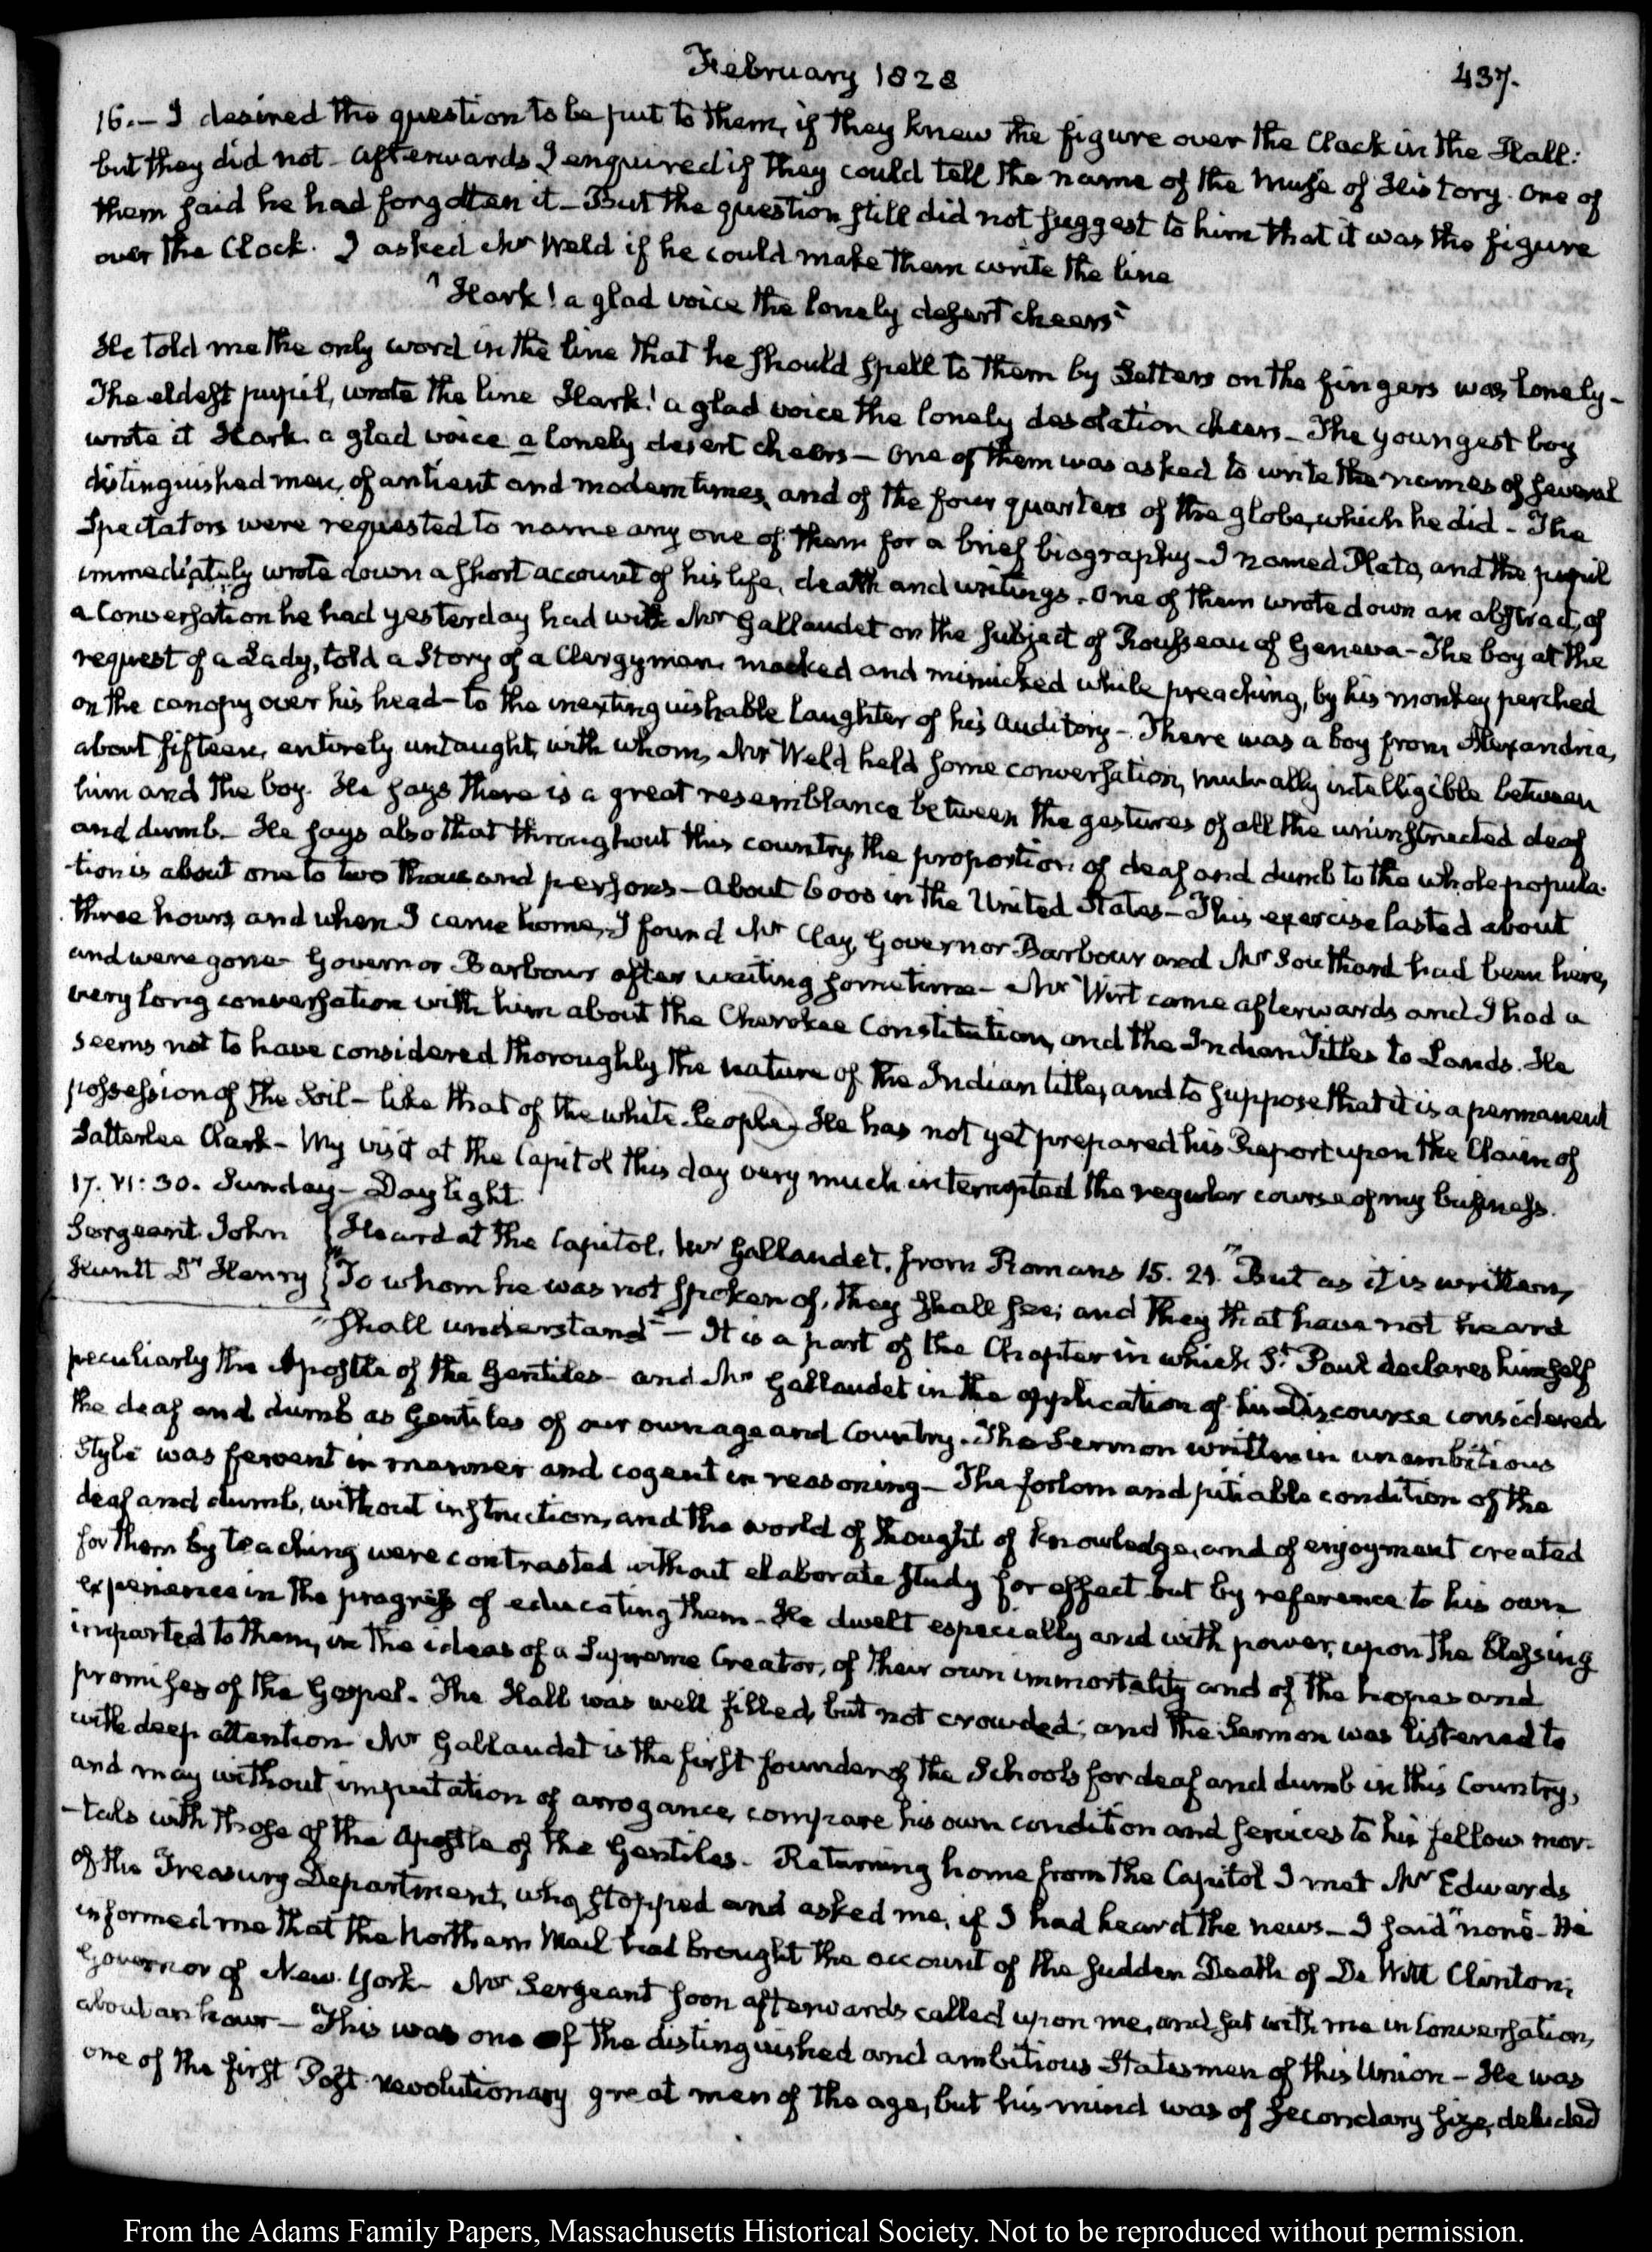 February 1828
437.
16.— I desired the question to be put to them, if they knew the figure over the Clock in the Hall:
but they did not— afterwards I enquired if they could tell the name of the Muse of History. One of
them said he had forgotten it— But the question still did not suggest to him that it was the figure
over the Clock. I asked Mr Weld if he could make them write the line
"Hark! a glad voice the lonely desert cheers"
He told me the only word in the line that he should spell to them by Letters on the fingers was lonely—
The eldest pupil, wrote the line Hark! a glad voice the lonely desolation cheers— The youngest boy
wrote it Hark a glad voice a lonely desert cheers— One of them was asked to write the names of several
distinguished men, of antient and modern times, and of the four quarters of the globe, which he did— The
Spectators were requested to name any one of them for a brief biography— I named Plato, and the pupil
immediately wrote down a short account of his life, death and writings. One of them wrote down an abstract, of
a Conversation he had yesterday had with Mr Gallaudet on the subject of Rousseau of Geneva— The boy at the
request of a Lady, told a Story of a Clergyman mocked and mimicked while preaching, by his monkey perched
on the canopy over his head— to the inextinguishable laughter of his auditory— There was a boy from Alexandria,
about fifteen, entirely untaught, with whom, Mr Weld held some conversation, mutually intelligible between
him and the boy. He says there is a great resemblance between the gestures of all the uninstructed deaf
and dumb— He says also that throughout this country, the proportion of deaf and dumb to the whole popula-
-tion is about one to two thousand persons— about 6000 in the United States— This exercise lasted about
three hours, and when I came home, I found Mr Clay, Governor Barbour and Mr Southard had been here,
and were gone— Governor Barbour after waiting sometime— Mr Wirt came afterwards and I had a
very long conversation with him about the Cherokee Constitution, and the Indian Titles to Lands. He
seems not to have considered thoroughly the nature of the Indian title, and to suppose that it is a permanent
possession of the Soil— like that of the white People. He has not yet prepared his Report upon the Claim of
Satterlee Clark— My visit at the Capitol this day very much interrupted the regular course of my business.
17. VI: 30. Sunday— Daylight
Sergeant John
Huntt Dr Henry
Heard at the Capitol, Mr Gallaudet, from Romans 15. 21. "But as it is written,
"To whom he was not spoken of, they shall see; and they that have not heard
"shall understand"— It is a part of the Chapter in which St Paul declares himself
peculiarly the Apostle of the Gentiles— and Mr Gallaudet in the application of his Discourse considered
the deaf and dumb as Gentiles of our own age and Country. The Sermon written in unambitious
Style was fervent in manner and cogent in reasoning— The forlorn and pitiable condition of the
deaf and dumb, without instruction, and the world of thought of knowledge, and of enjoyment created
for them by teaching were contrasted without elaborate study for effect but by reference to his own
experience in the progress of educating them— He dwelt especially and with power, upon the blessing
imparted to them, in the ideas of a Supreme Creator, of their own immortality and of the hopes and
promises of the Gospel. The Hall was well filled, but not crowded; and the Sermon was listened to
with deep attention— Mr Gallaudet is the first founder of the Schools for deaf and dumb in this Country,
and may without imputation of arrogance, compare his own condition and services to his fellow mor-
-tals with those of the Apostle of the Gentiles. Returning home from the Capitol I met Mr Edwards
of the Treasury Department, who stopped and asked me, if I had heard the news— I said "none"— He
informed me that the Northern Mail had brought the account of the sudden Death of De Witt Clinton;
Governor of New-York— Mr Sergeant soon afterwards called upon me, and sat with me in Conversation,
about an hour— This was one of the distinguished and ambitious Statesmen of this Union— He was
one of the first Post-revolutionary great men of the age, but his mind was of secondary size, deluded
From the Adams Family Papers, Massachusetts Historical Society. Not to be reproduced without permission.